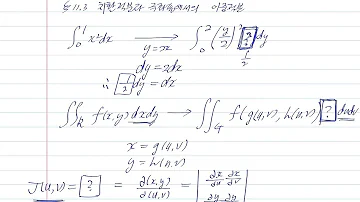 §11.3 치환적분과 극좌표에서의 이중적분
∫₀¹ x²dx ⟶ ∫₀² (y/2)² [?] dy
y=2x
1/2
dy = 2dx
∴ [1/2] dy = dx
∬_R f(x,y) dxdy ⟶ ∬_G f(g(u,v), h(u,v)) [?] dudv
x = g(u,v)
y = h(u,v)
J(u,v) = [?] = ∂(x,y)/∂(u,v) = | ∂x/∂u ∂x/∂v
∂y ∂y